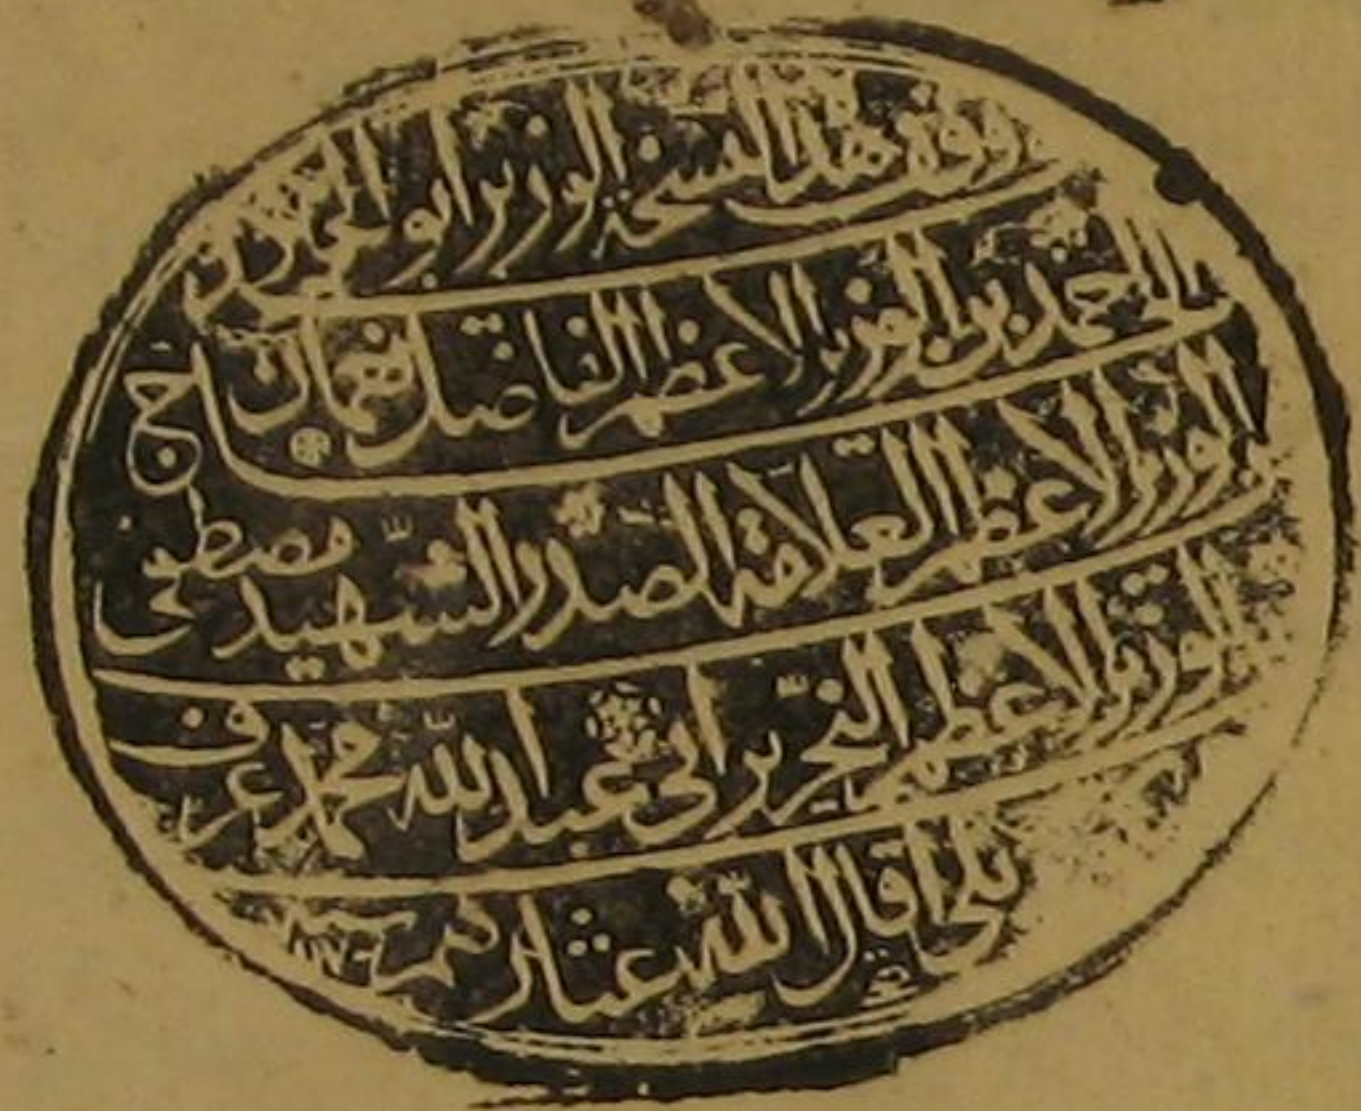 وقف هذا النسخة الوزير ابو الخير
الحاج احمد بن الوزير الاعظم الفاضل نعمان
الوزير الاعظم العلامة الصدر الشهيد مصطفى
الوزير الاعظم النحرير ابي عبد الله محمد عرف
بكوپريلي اقال الله عثارهم